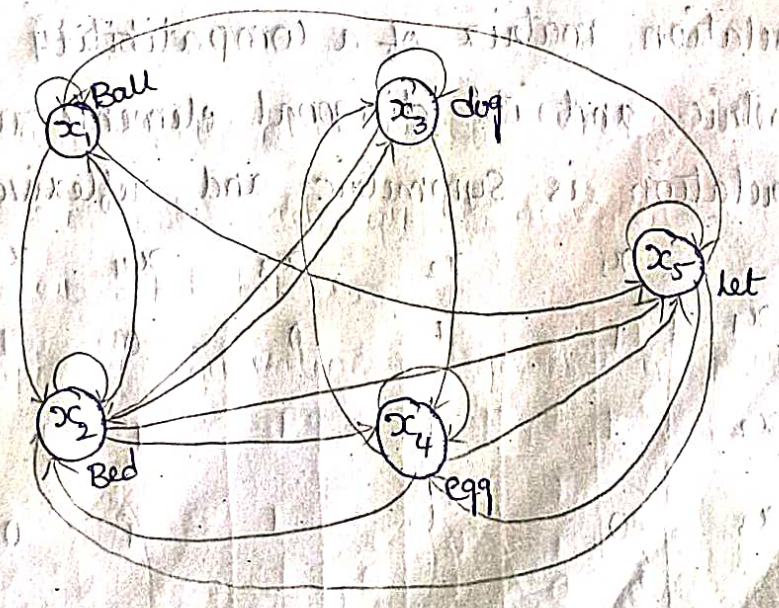 Ball
x₁
x₃
dog
x₅
let
x₂
Bed
x₄
egg